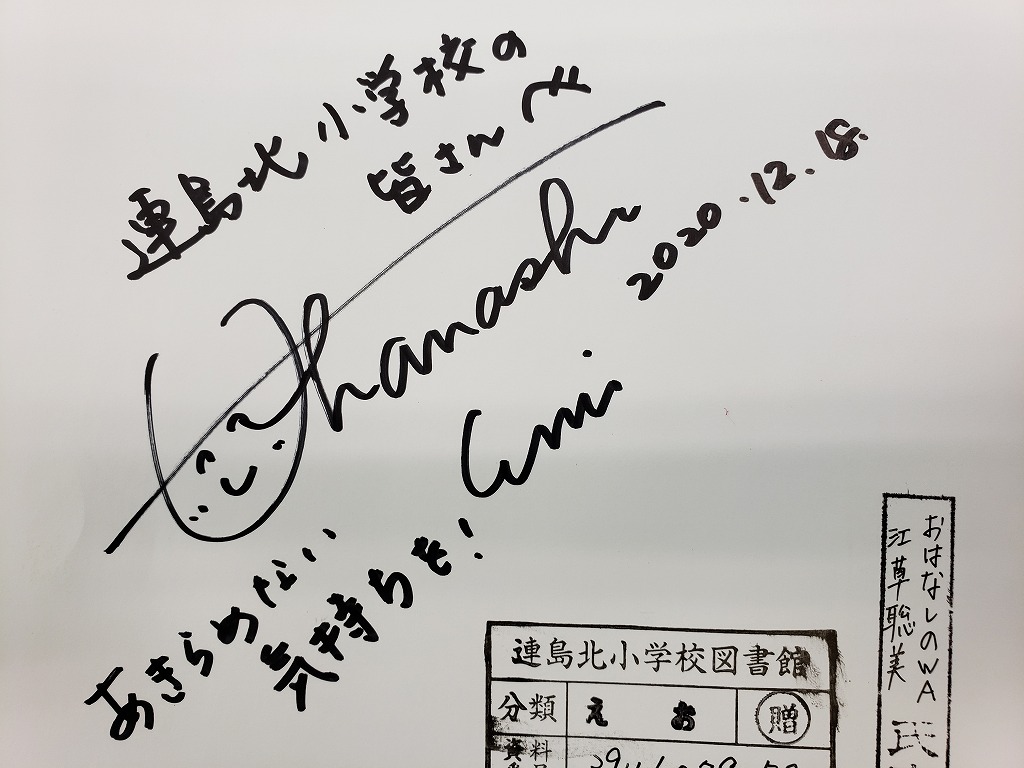 連島北小学校の
皆さんへ
Ohanashi
Emi
2020.12.18.
あきらめない
気持ちを!
連島北小学校図書館
分類 え お 贈
資料
おはなしのWA
江草聡美 氏